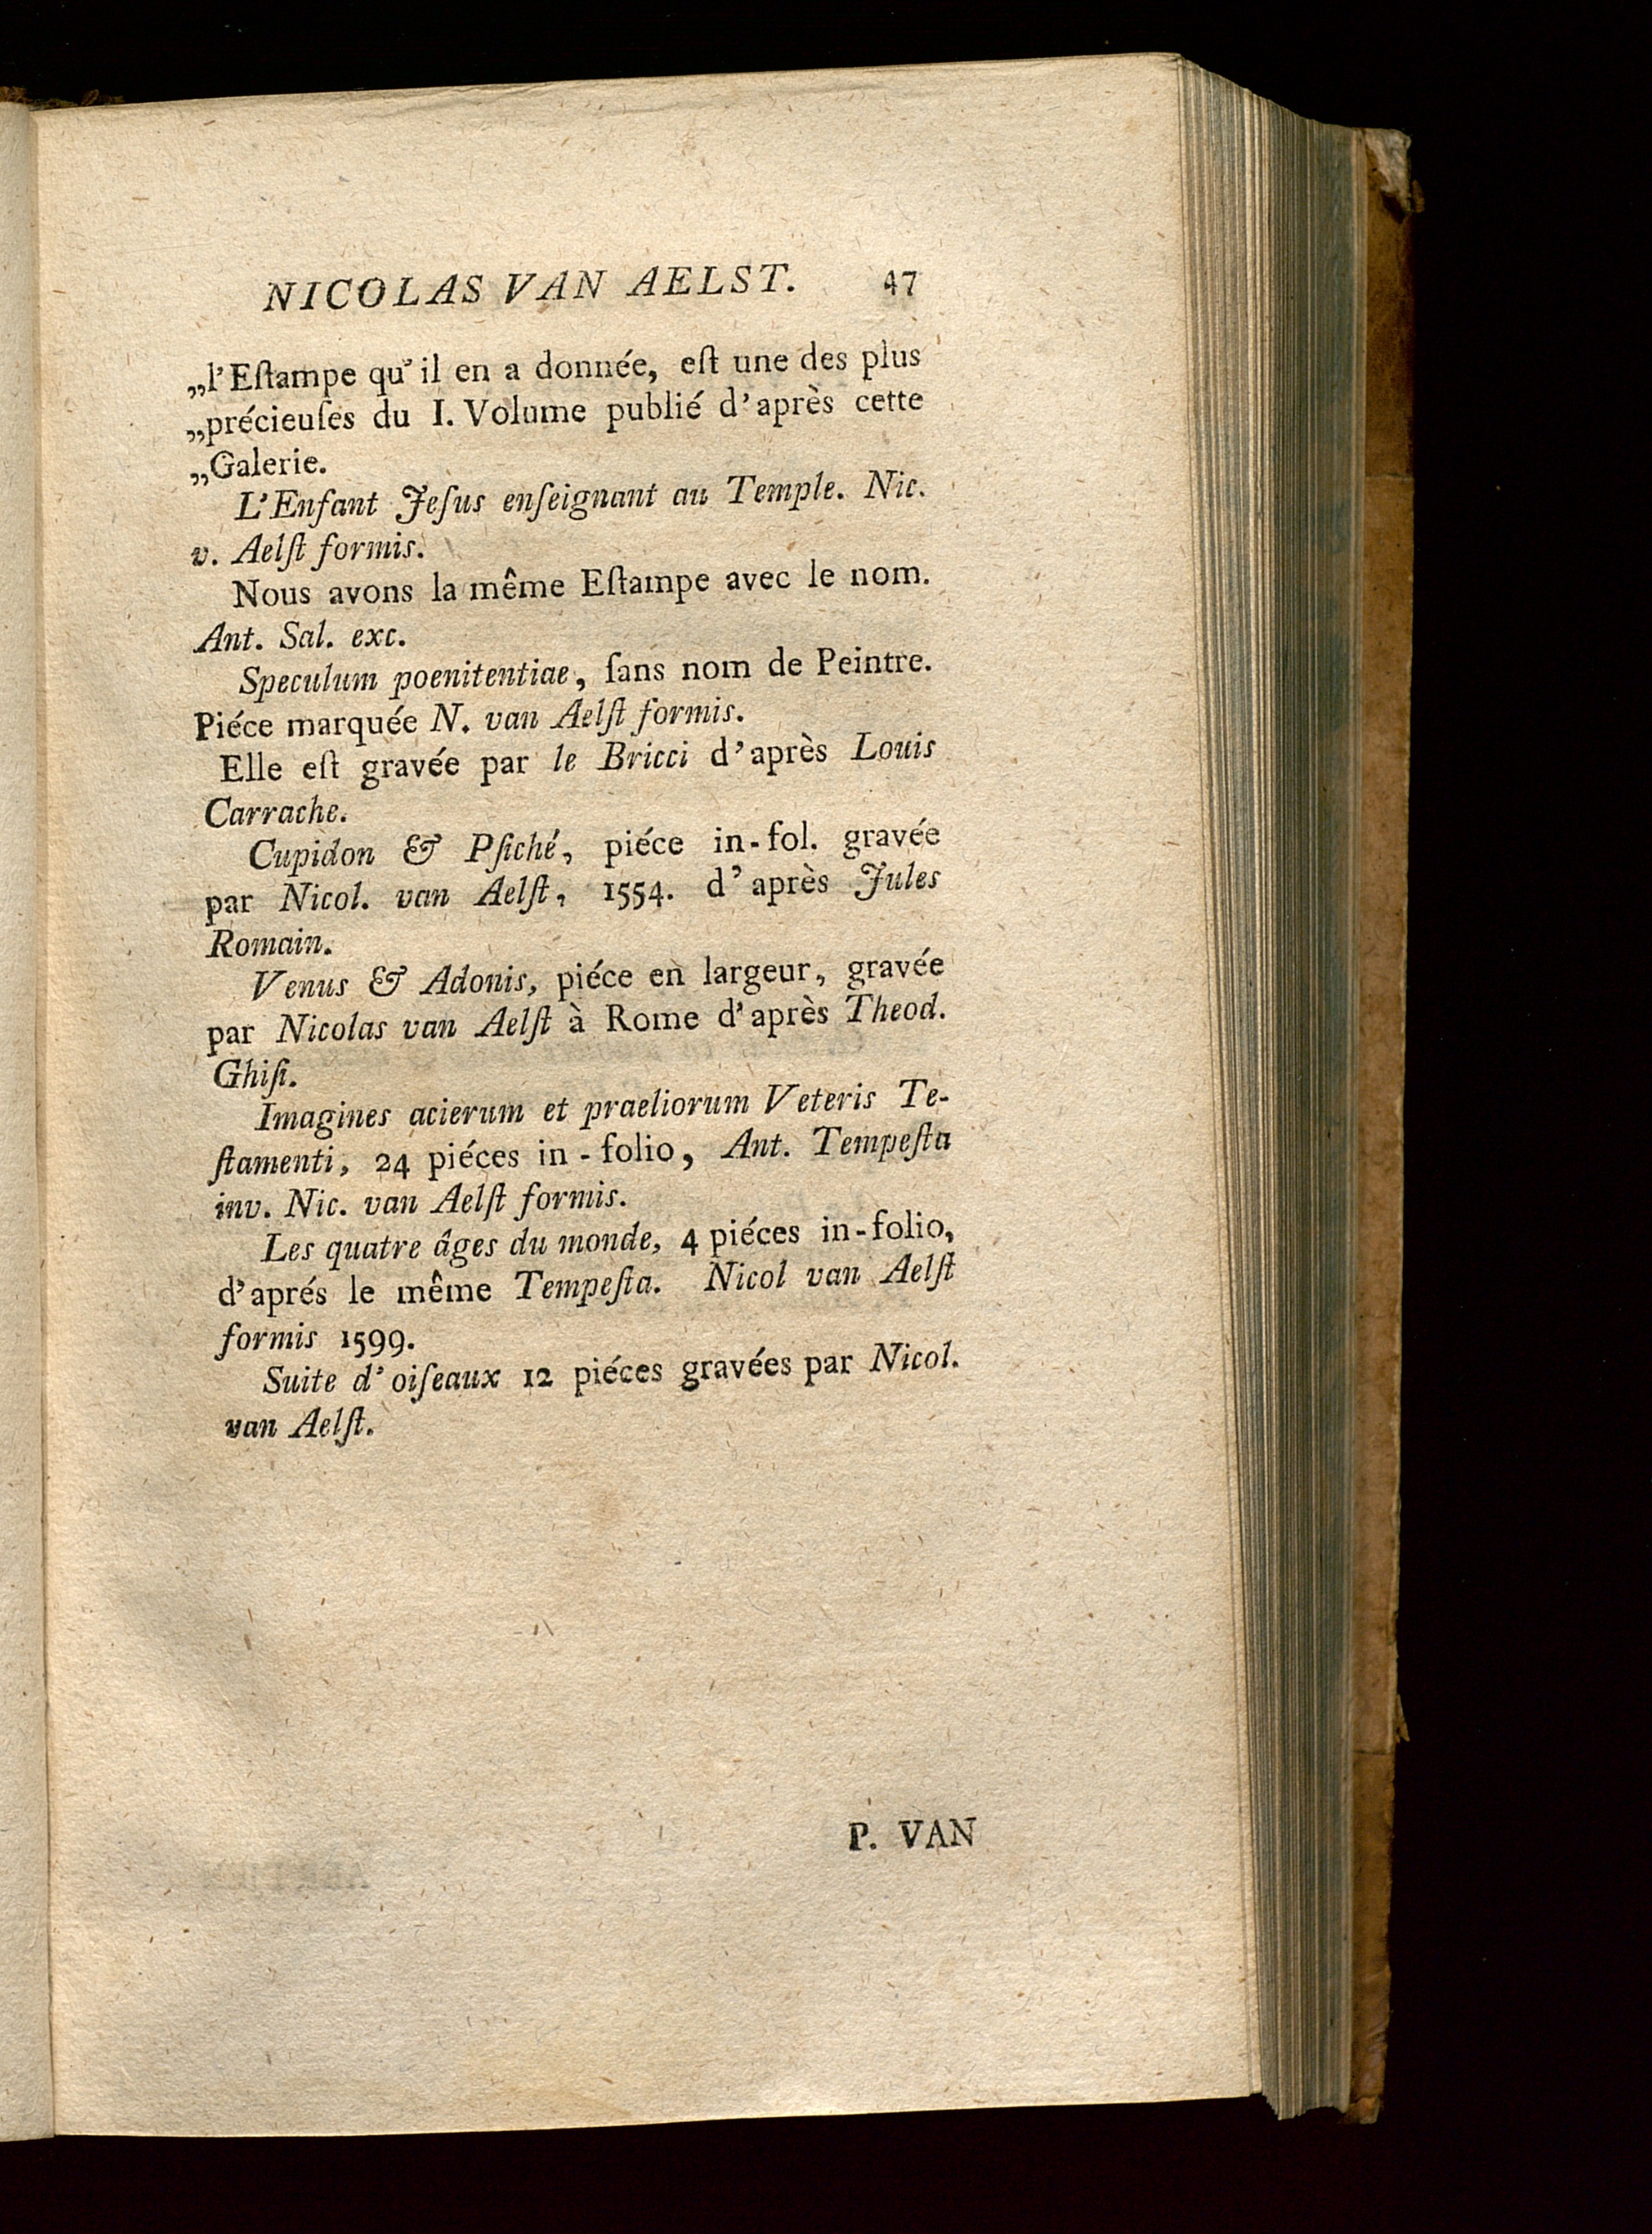 NICOLAS VAN AELST. 47
„l'Eſtampe qu'il en a donnée, eſt une des plus
„précieuſes du I. Volume publié d'après cette
„Galerie.
L'Enfant Jeſus enſeignant au Temple. Nic.
v. Aelſt formis.
Nous avons la même Eſtampe avec le nom.
Ant. Sal. exc.
Speculum poenitentiae, ſans nom de Peintre.
Piéce marquée N. van Aelſt formis.
Elle eſt gravée par le Bricci d'après Louis
Carrache.
Cupidon & Pſiché, piéce in-fol. gravée
par Nicol. van Aelſt, 1554. d'après Jules
Romain.
Venus & Adonis, piéce en largeur, gravée
par Nicolas van Aelſt à Rome d'après Theod.
Ghiſi.
Imagines acierum et praeliorum Veteris Te-
ſtamenti, 24 piéces in-folio, Ant. Tempeſta
inv. Nic. van Aelſt formis.
Les quatre âges du monde, 4 piéces in-folio,
d'aprés le même Tempeſta. Nicol van Aelſt
formis 1599.
Suite d'oiſeaux 12 piéces gravées par Nicol.
van Aelſt.
P. VAN